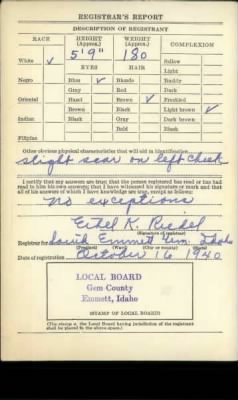 REGISTRAR'S REPORT
DESCRIPTION OF REGISTRANT
RACE HEIGHT (Approx.) WEIGHT (Approx.) COMPLEXION
5'9" 180
White ✓ Sallow
EYES HAIR Light
Negro Blue ✓ Blonde Ruddy
Gray Red Dark
Oriental Hazel Brown ✓ Freckled
Brown Black Light brown ✓
Indian Black Gray Dark brown
Bald Black
Filipino
Other obvious physical characteristics that will aid in identification
slight scar on left cheek
I certify that my answers are true; that the person registered has read or has had
read to him his own answers; that I have witnessed his signature or mark and that
all of his answers of which I have knowledge are true, except as follows:
no exceptions
Ethel K. Riedel
(Signature of registrar)
Registrar for Emmett Gem. Idaho
(Precinct) (Ward) (City or county) (State)
Date of registration October 16 1940
LOCAL BOARD
Gem County
Emmett, Idaho
(STAMP OF LOCAL BOARD)
(The stamp of the Local Board having jurisdiction of the registrant
shall be placed in the above space.)